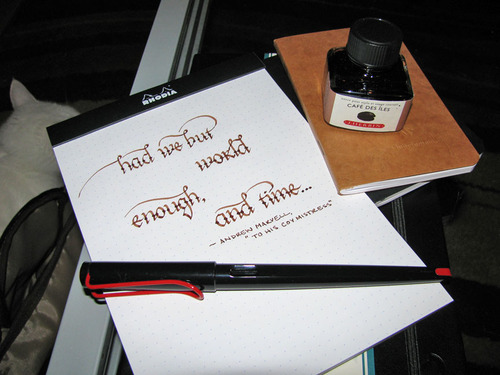 RHODIA
had we but
world
enough,
and time...
— ANDREW MARVELL,
"TO HIS COY MISTRESS"
CAFÉ DES ÎLES
J. HERBIN